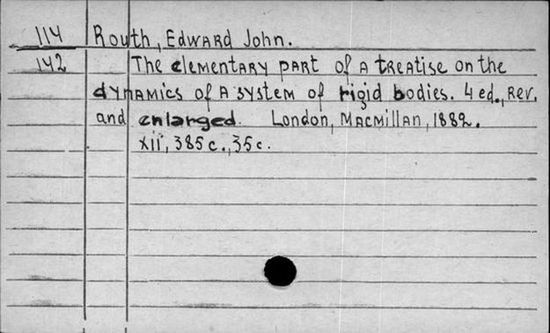 114 Routh, Edward John.
142 The elementary part of a treatise on the
dynamics of a system of rigid bodies. 4 ed., rev.
and enlarged. London, Macmillan, 1882.
xii, 385 c., 35 c.